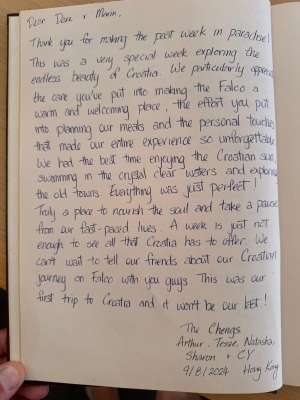 Dear Dora & Marin,
Thank you for making the past week in paradise!
This was a very special week exploring the
endless beauty of Croatia. We particularly
the care you've put into making the Falco a
warm and welcoming place, the effort you put
into planning our meals and the personal touches
that made our entire experience so unforgettable.
We had the best time enjoying the Croatian sun,
swimming in the crystal clear waters and exploring
the old towns. Everything was just perfect!
Truly a place to nourish the soul and take a pause
from our fast-paced lives. A week is just not
enough to see all that Croatia has to offer. We
can't wait to tell our friends about our Croatian
journey on Falco with you guys. This was our
first trip to Croatia and it won't be our last!
The Chengs
Arthur, Tessie, Natasha,
Sharon & CY
9/8/2024 Hong Kong